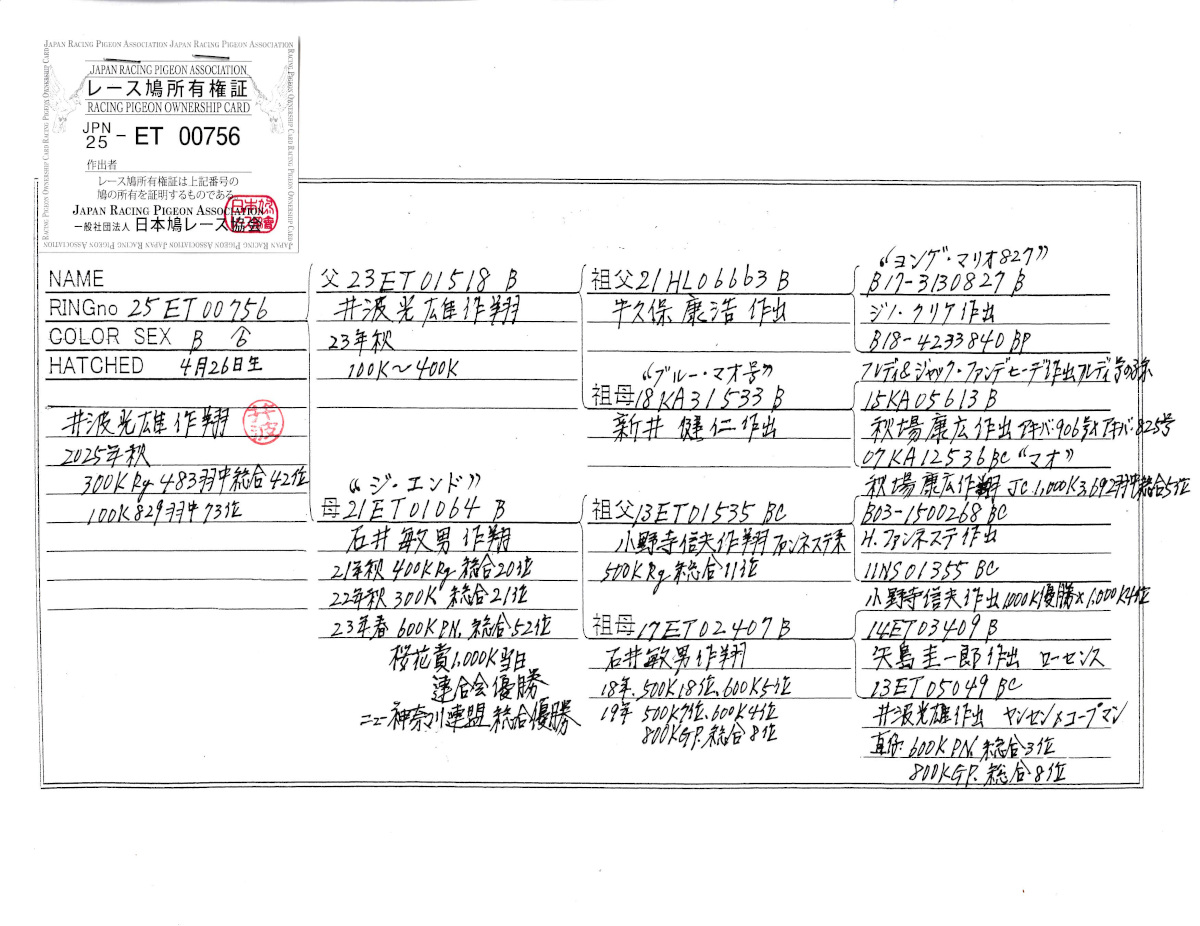 JAPAN RACING PIGEON ASSOCIATION JAPAN RACING PIGEON ASSOCIATION
JAPAN RACING PIGEON ASSOCIATION
レース鳩所有権証
RACING PIGEON OWNERSHIP CARD
JPN
25 - ET 00756
作出者
レース鳩所有権証は上記番号の
鳩の所有を証明するものである
JAPAN RACING PIGEON ASSOCIATION
一般社団法人 日本鳩レース協会
NAME
RINGno 25ET00756
COLOR SEX B ♂
HATCHED 4月26日生
井波光雄作翔
井波
2025年秋
300KRg 483羽中総合42位
100K829羽中73位
父23ET01518 B
井波光雄作翔
23年秋
100K〜400K
"ジ・エンド"
母21ET01064 B
石井敏男作翔
21年秋 400KRg 総合20位
22年秋 300K 総合21位
23年春 600KPN. 総合52位
桜花賞1,000K当日
連合会優勝
ニュー神奈川連盟総合優勝
祖父21HL06663 B
牛久保康浩 作出
"ブルー・マオ号"
祖母18KA31533 B
新井健仁作出
祖父13ET01535 BC
小野寺信夫作翔 ファンネステ系
500KRg 総合11位
祖母17ET02407 B
石井敏男作翔
18年、500K18位、600K5位
19年 500K7位、600K4位
800KGP. 総合8位
"ヨンゲ・マリオ827"
B17-3130827 B
ジノ・クリケ作出
B18-4233840 BP
フレディ&ジャック・ファンデヒーデ作出フレディ号の3系
15KA05613 B
秋場康広作出アキバ906号×アキバ825号
07KA12536BC "マオ"
秋場康広作翔 JC 1,000K3,692羽中総合5位
B03-1500268 BC
H.ファンネステ作出
11NS01355 BC
小野寺信夫作出1000K優勝×1,000K4位
14ET03409 B
矢島圭一郎作出 ローセンス
13ET05049 BC
井波光雄作出 ヤンセン×コープマン
直仔 600KPN. 総合3位
800KGP. 総合8位